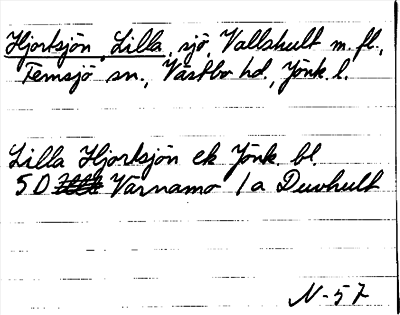 Hjortsjön, Lilla, sjö, Vallshult m.fl.,
Femsjö sn., Västbo hd., Jönk. l.
Lilla Hjortsjön ek Jönk. bl.
5 D Värnamo 1a Duvhult
N-57